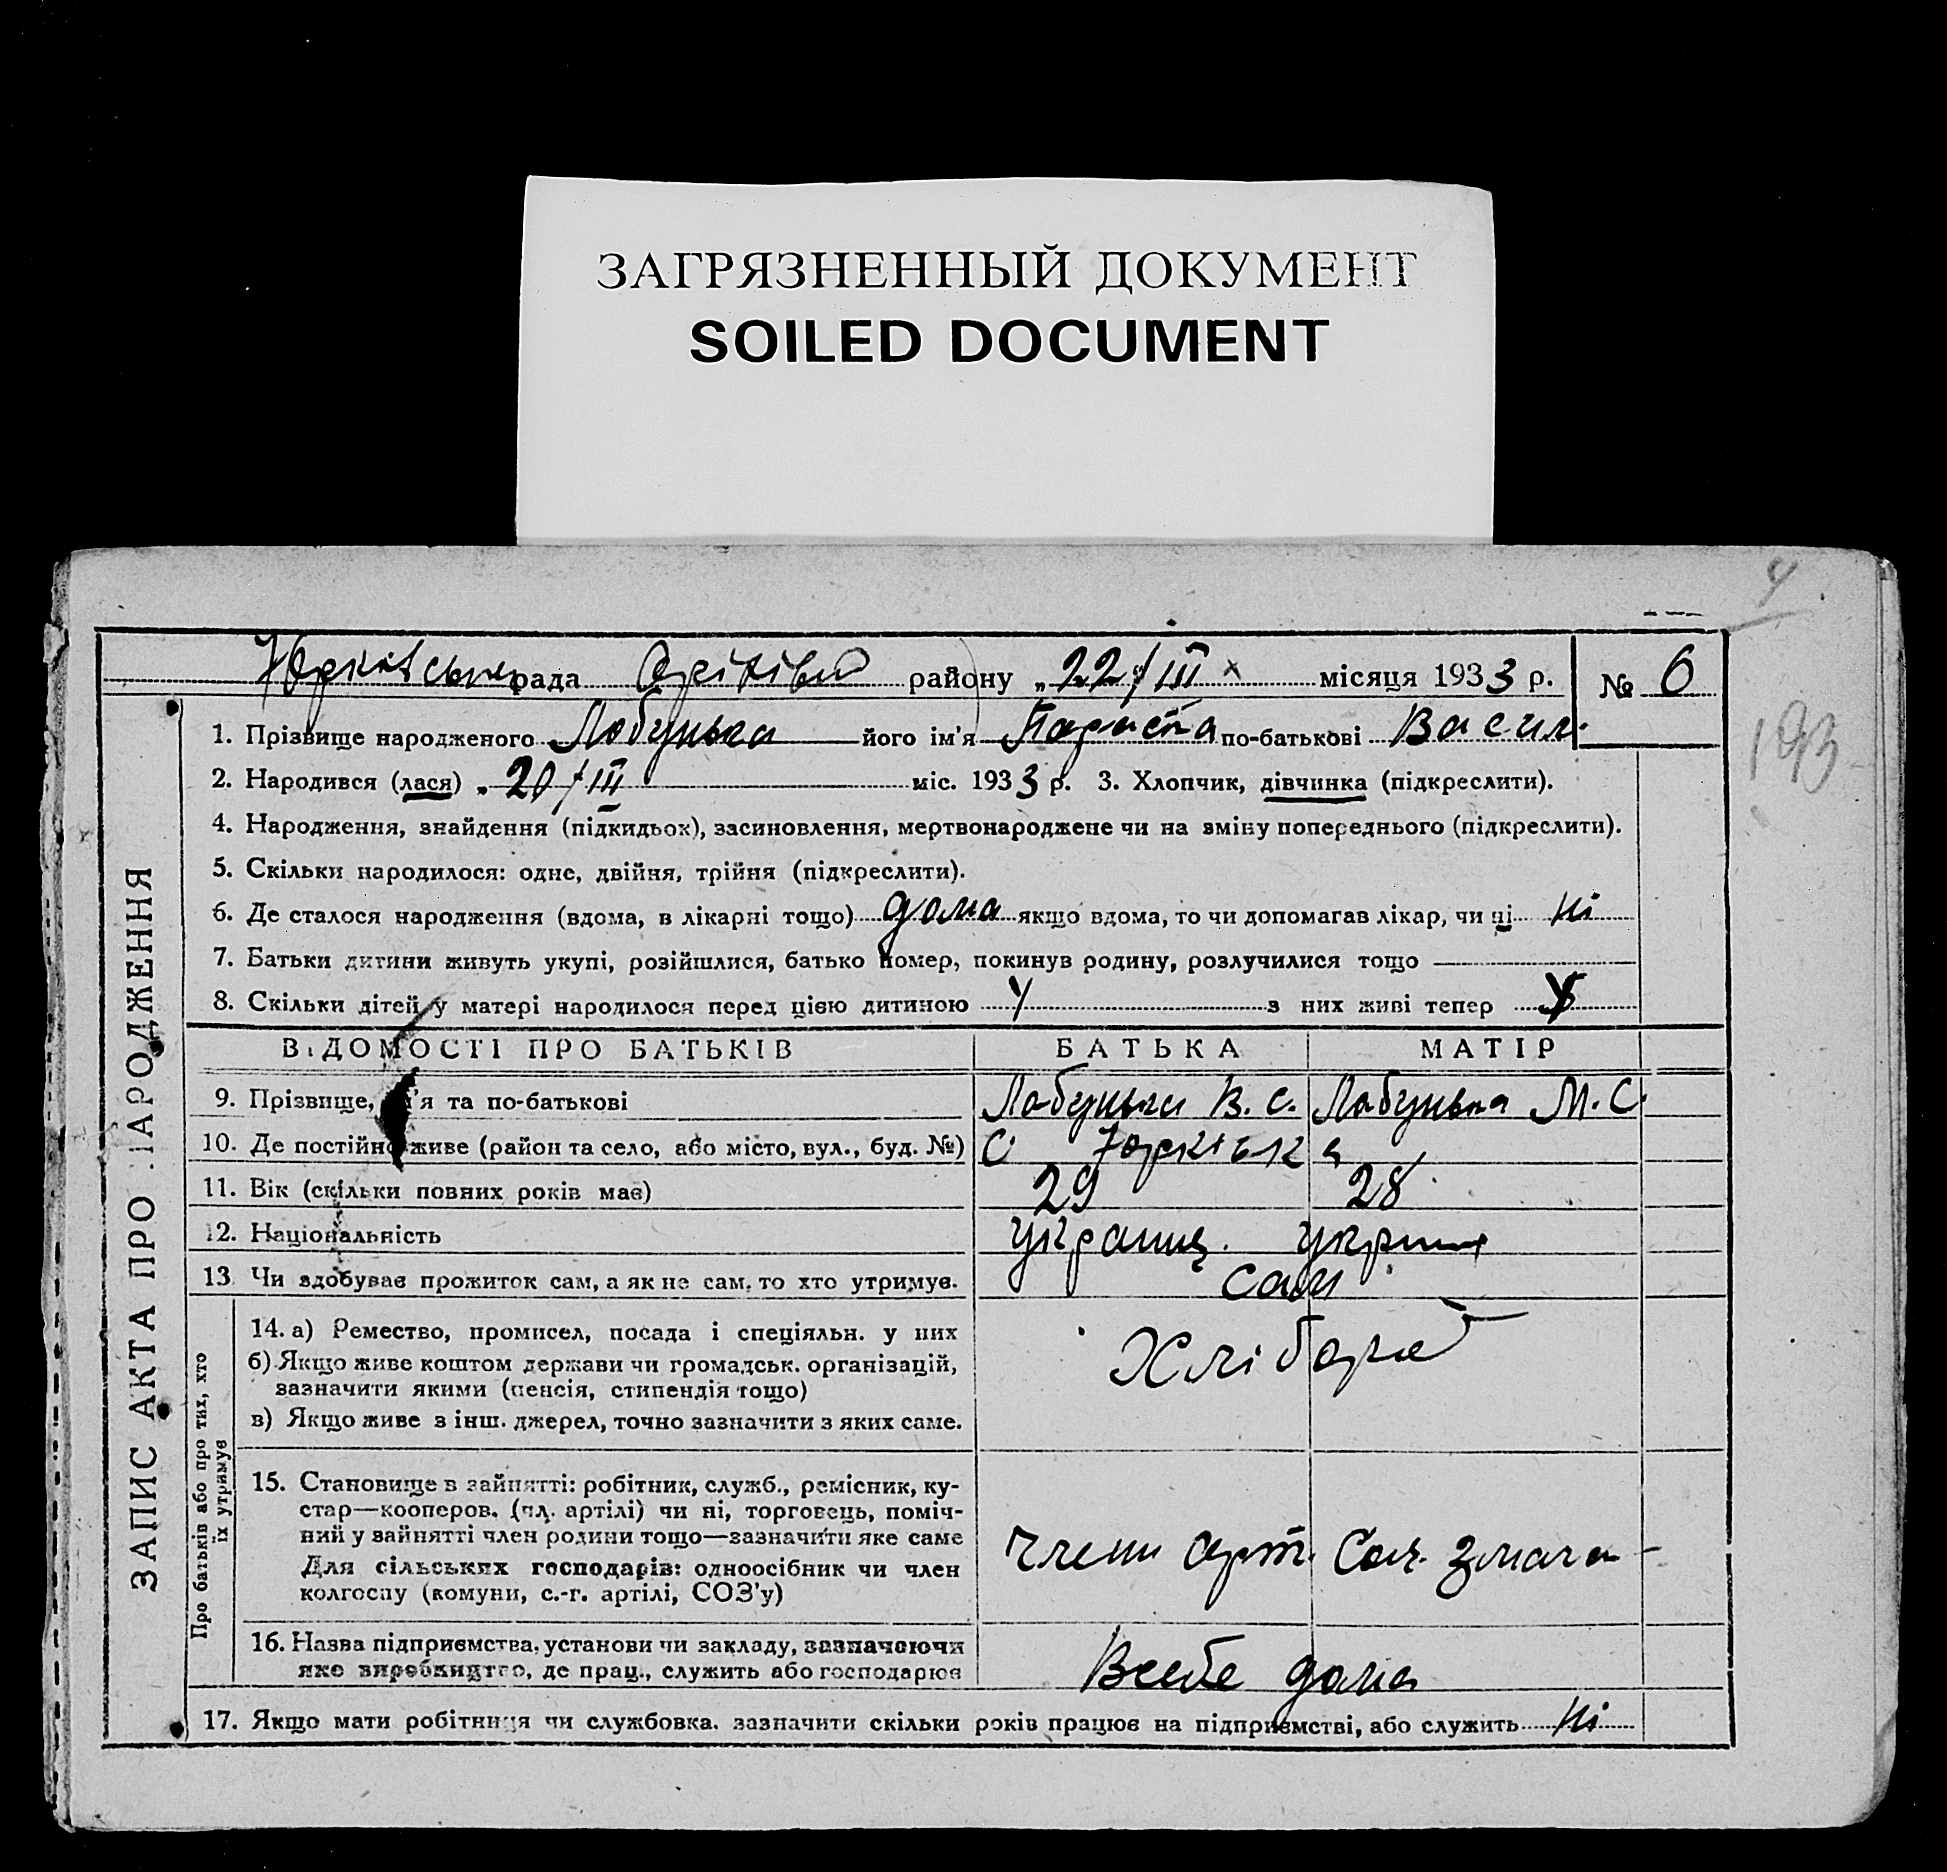 ЗАГРЯЗНЕННЫЙ ДОКУМЕНТ
SOILED DOCUMENT
4
рада району „22/III місяця 1933 р. № 6
193
ЗАПИС АКТА ПРО НАРОДЖЕННЯ
1. Прізвище народженого Лобунька його ім'я по-батькові Васил.
2. Народився (лася) „20/III міс. 1933 р. 3. Хлопчик, дівчинка (підкреслити).
4. Народження, знайдення (підкидьок), засиновлення, мертвонароджене чи на зміну попереднього (підкреслити).
5. Скільки народилося: одне, двійня, трійня (підкреслити).
6. Де сталося народження (вдома, в лікарні тощо) дома якщо вдома, то чи допомагав лікар, чи ні ні
7. Батьки дитини живуть укупі, розійшлися, батько помер, покинув родину, розлучилися тощо
8. Скільки дітей у матері народилося перед цією дитиною з них живі тепер
ВІДОМОСТІ ПРО БАТЬКІВ БАТЬКА МАТІР
9. Прізвище, ім'я та по-батькові Лобунька В. С. Лобунька М. С.
10. Де постійно живе (район та село, або місто, вул., буд. №) С Юрківка
11. Вік (скільки повних років має) 29 28
12. Національність
13. Чи здобуває прожиток сам, а як не сам, то хто утримує. сами
Про батьків або про тих, хто
їх утримує
14. а) Ремество, промисел, посада і спеціяльн. у них
б) Якщо живе коштом держави чи громадськ. організацій,
зазначити якими (пенсія, стипендія тощо)
в) Якщо живе з інш. джерел, точно зазначити з яких саме.
Хлібороб
15. Становище в зайнятті: робітник, служб., ремісник, ку-
стар—кооперов. (чл. артілі) чи ні, торговець, поміч-
ний у зайнятті член родини тощо—зазначити яке саме
Для сільських господарів: одноосібник чи член
колгоспу (комуни, с.-г. артілі, СОЗ'у)
члени арт.
16. Назва підприємства, установи чи закладу, зазначаючи
яке виробництво, де прац., служить або господарює
Всебе дома
17. Якщо мати робітниця чи службовка, зазначити скільки років працює на підприємстві, або служить ні